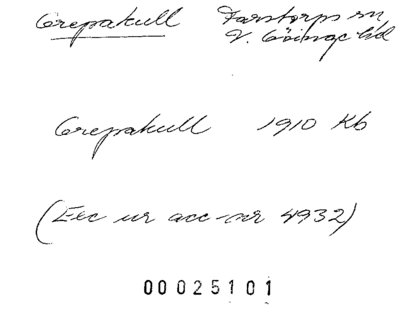 Örepakull Farstorps sn,
V. Göinge hd
Örepakull 1910 Kb
(Exc ur acc-nr 4932)
00025101